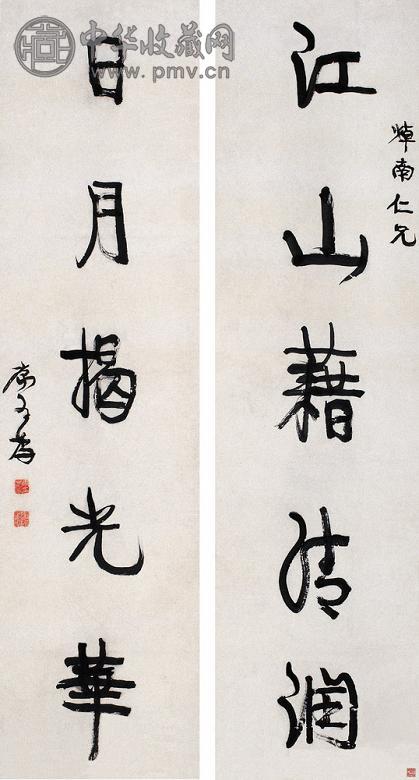 中华收藏网
www.pmv.cn
焯南仁兄
江山藉清潤
日月揭光華
康有為